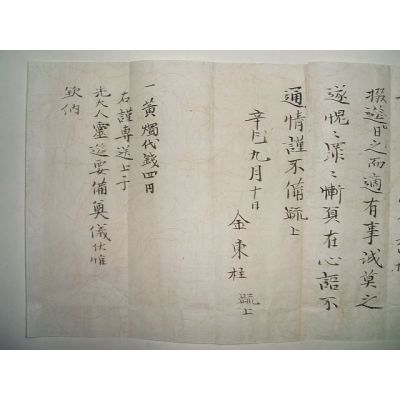 掇遊日之而適有事誠莫之
遂愧〻深〻慚負在心語不
通情謹不備疏上
辛巳九月十日
金東柱 疏上
一黃燭代錢四円
右謹專送上于
先大人靈筵要備奠儀伏惟
欽納